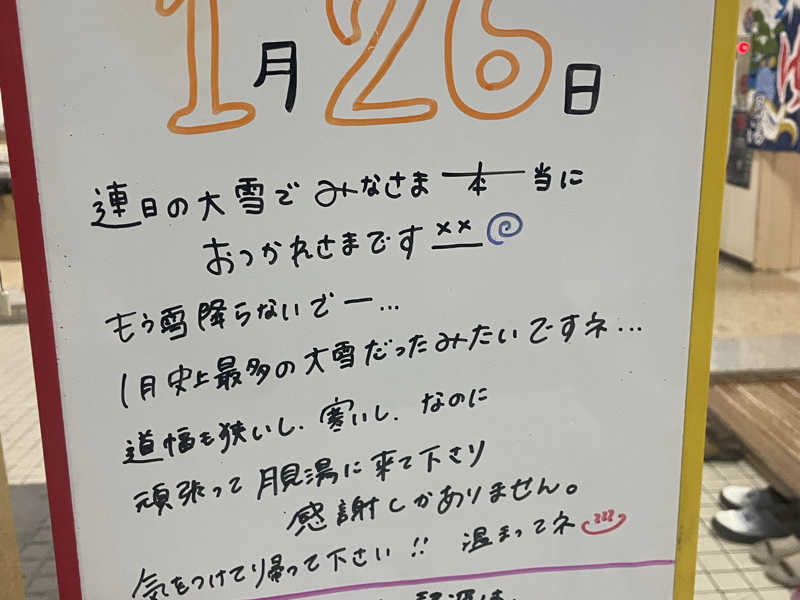 1月26日
連日の大雪で みなさま 本当に
おつかれさまです××
もう雪降らないでー…
1月史上最多の大雪だったみたいですネ…
道幅も狭いし、寒いし、なのに
頑張って 月見湯に来て下さり
感謝しかありません。
気をつけて帰って下さい!! 温まってネ